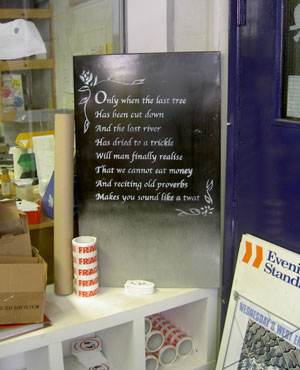 Only when the last tree
Has been cut down
And the last river
Has dried to a trickle
Will man finally realise
That we cannot eat money
And reciting old proverbs
Makes you sound like a twat
FRAG
FRAG
FRAG
Eveni
Stand
WEDNESDAY'S WEST E